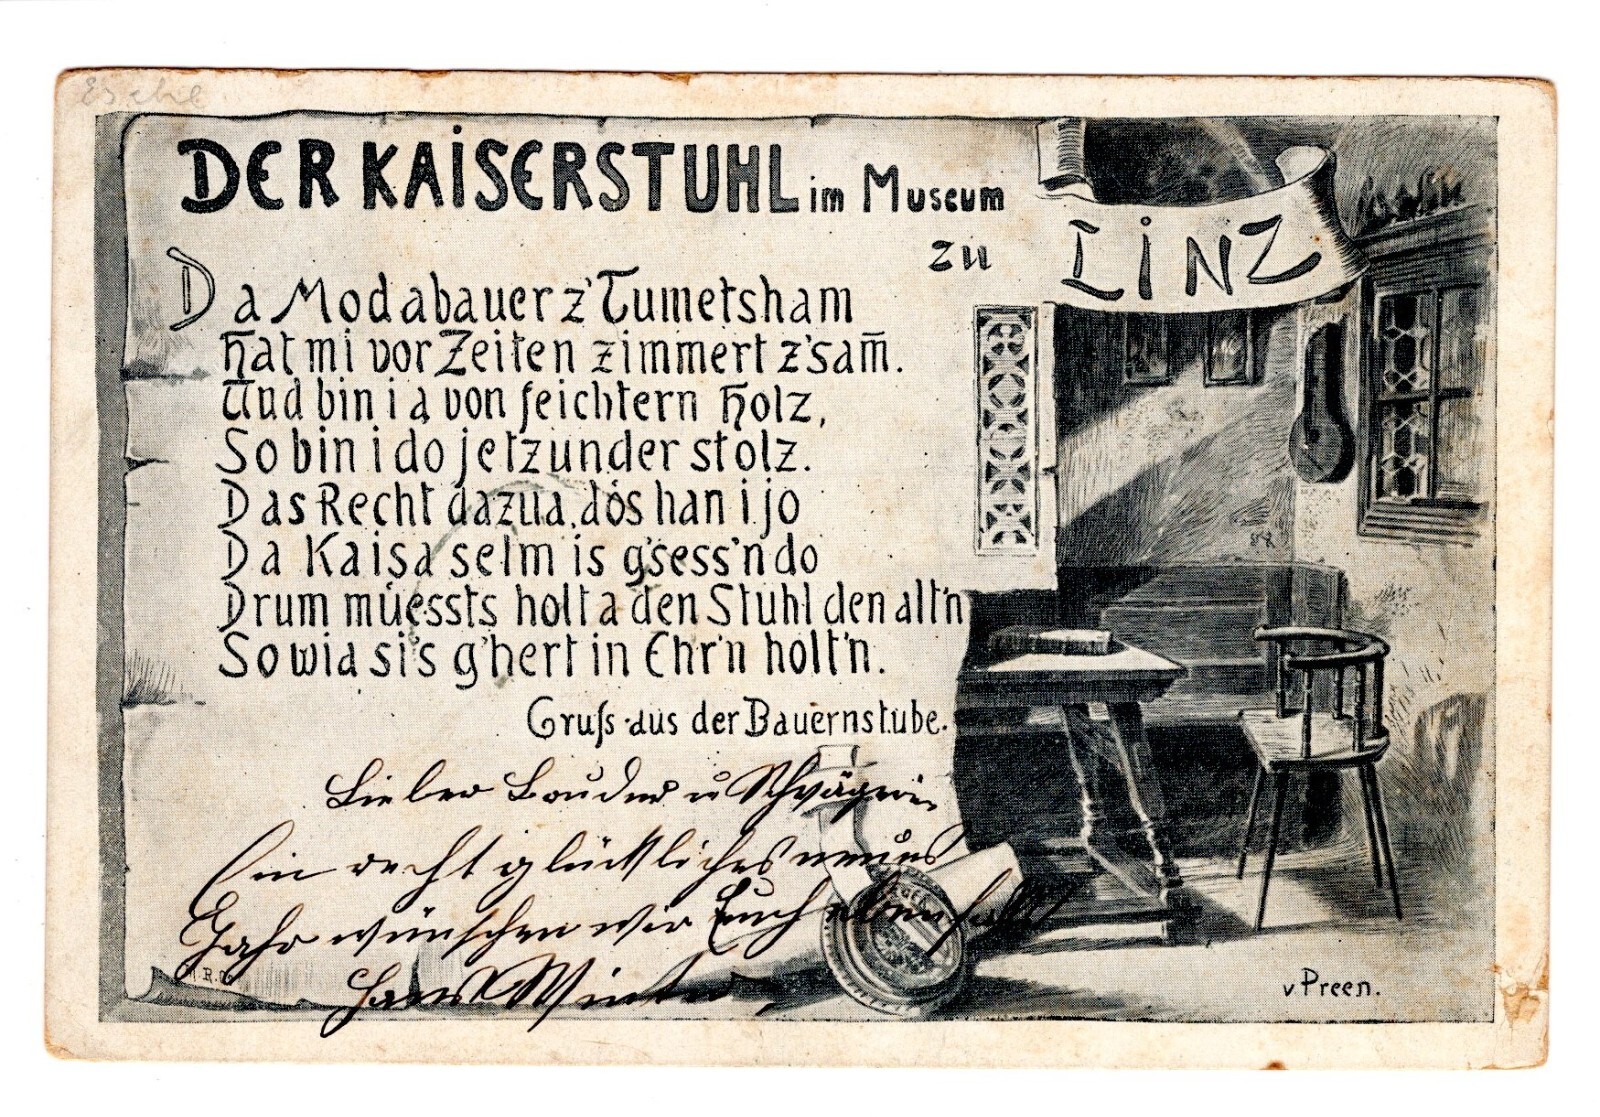 Esche
DER KAISERSTUHL im Museum
zu LINZ
Da Modabauer z'Tumetsham
Hat mi vor Zeiten zimmert z'sam̄.
Und bin i a von feichtern Holz,
So bin i do jetzunder stolz.
Das Recht dazua, dös han i jo
Da Kaisa selm is g'sess'n do
Drum müessts holt a den Stuhl den alt'n
So wia si's g'hert in Ehr'n holt'n.
Gruss aus der Bauernstube.
Lieber Bruder u Schwägerin
Ein recht glückliches neues
Jahr wünschen wir Euch ebenfalls
Hans Winter
v Preen.